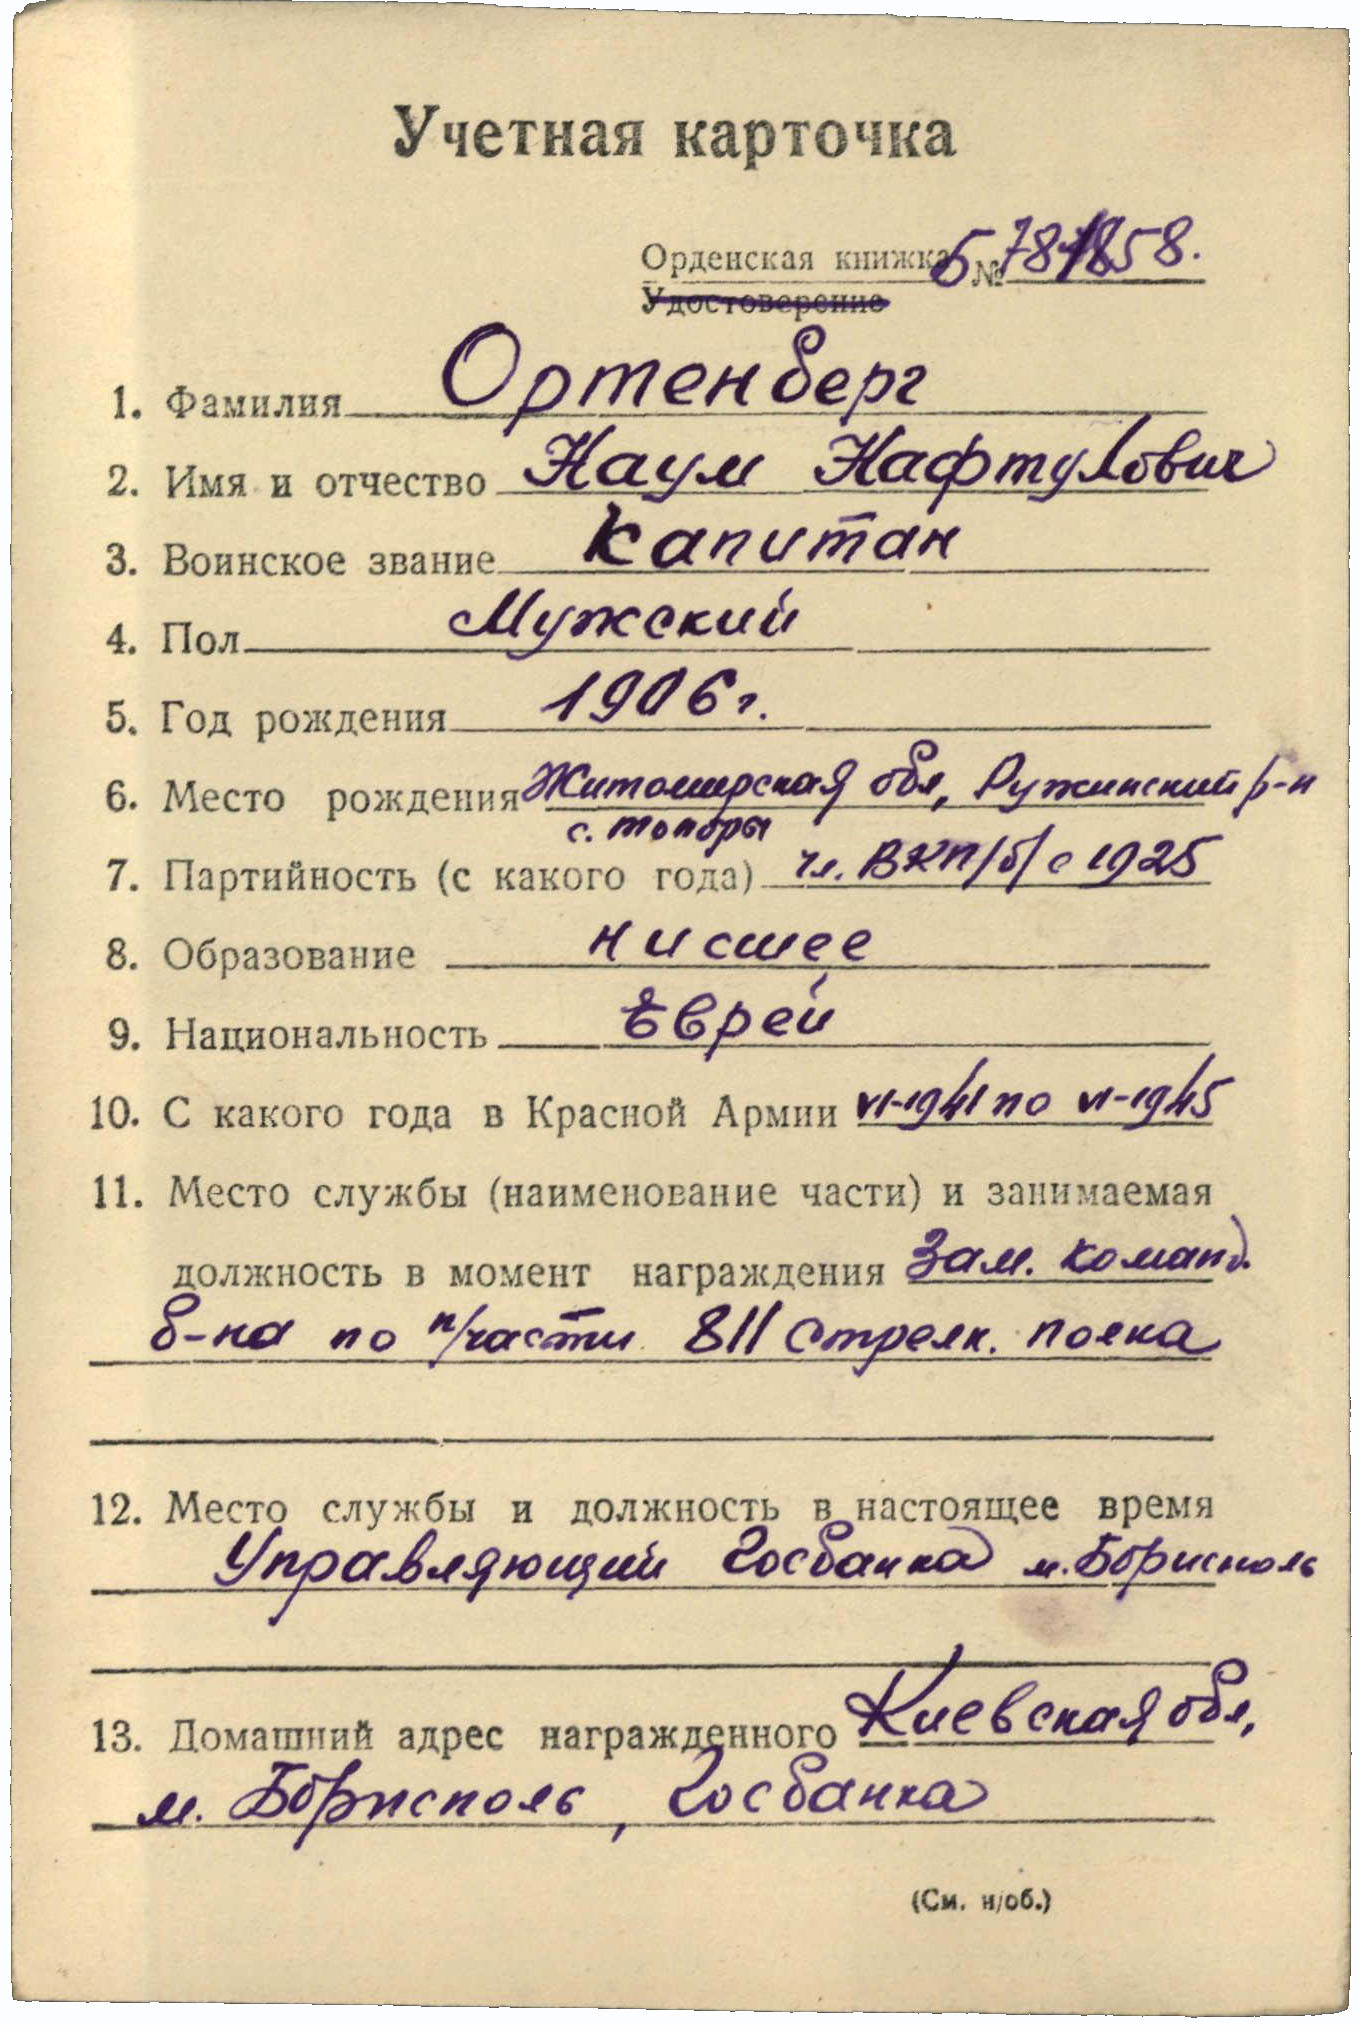 Учетная карточка
Орденская книжка Б № 781858.
Удостоверение
1. Фамилия Ортенберг
2. Имя и отчество Наум Нафтулович
3. Воинское звание Капитан
4. Пол Мужский
5. Год рождения 1906 г.
6. Место рождения Житомирская обл, Ружинский р-н
с. Топоры
7. Партийность (с какого года) чл. ВКП/б/ с 1925
8. Образование нисшее
9. Национальность Еврей
10. С какого года в Красной Армии VI-1941 по VI-1945
11. Место службы (наименование части) и занимаемая
должность в момент награждения Зам. команд.
б-на по п/части 811 стрелк. полка
12. Место службы и должность в настоящее время
Управляющий Госбанка м. Борисполь
13. Домашний адрес награжденного Киевская обл,
м. Борисполь, Госбанка
(См. н/об.)